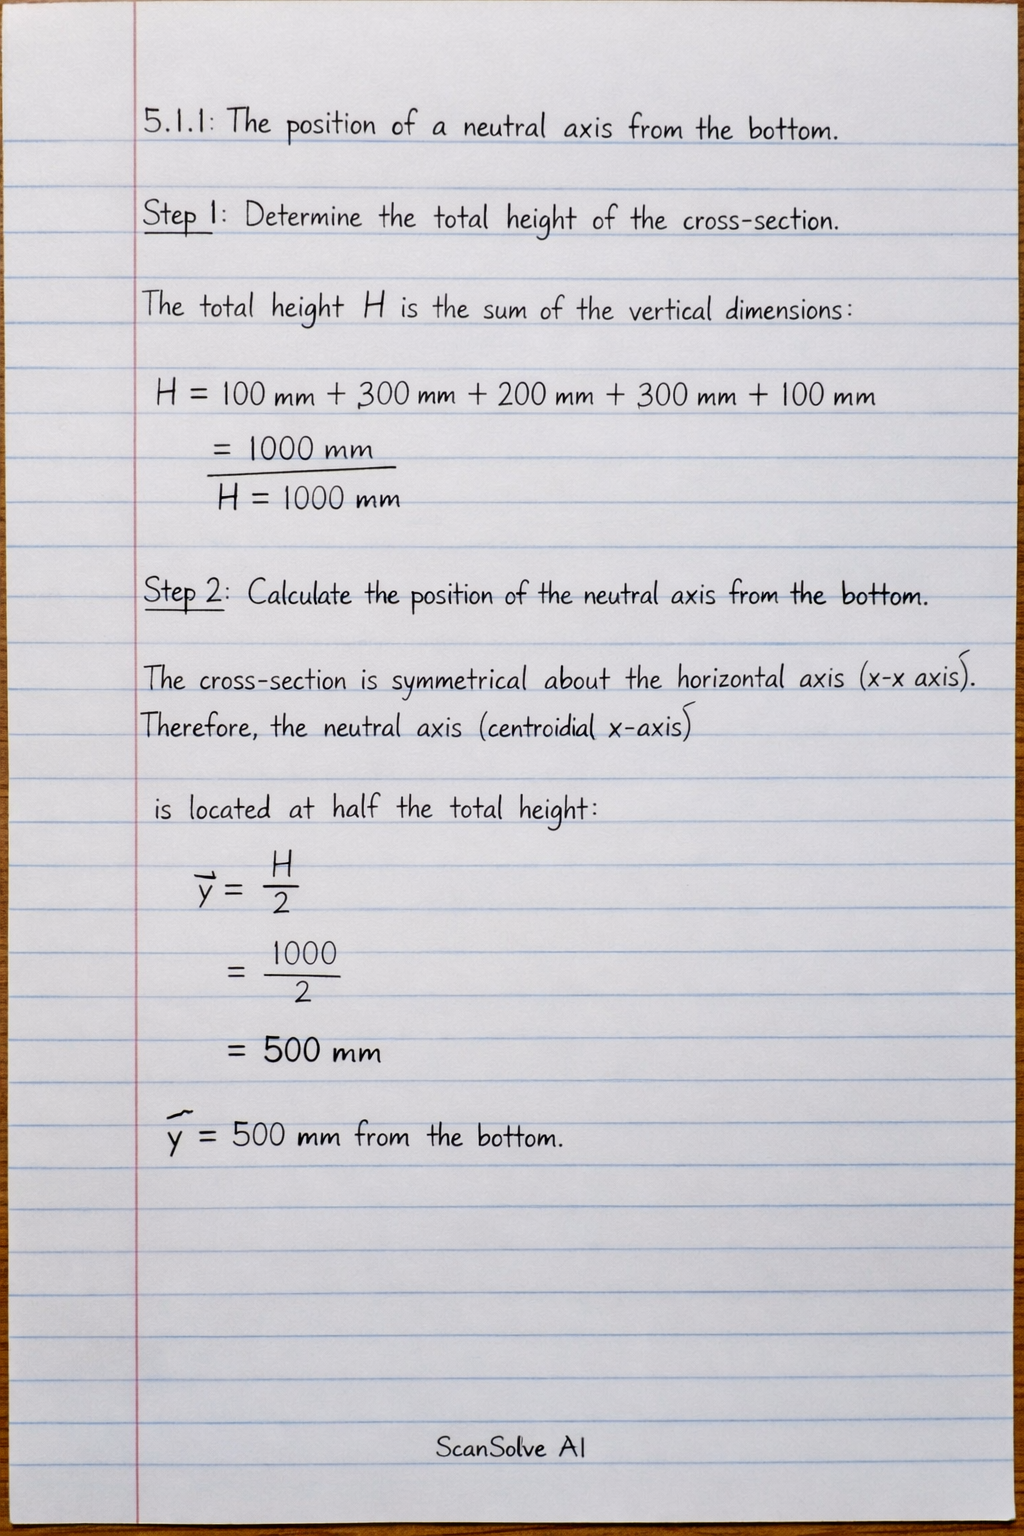 5.1.1: The position of a neutral axis from the bottom.
Step 1: Determine the total height of the cross-section.
The total height H is the sum of the vertical dimensions:
H = 100 mm + 300 mm + 200 mm + 300 mm + 100 mm
= 1000 mm
H = 1000 mm
Step 2: Calculate the position of the neutral axis from the bottom.
The cross-section is symmetrical about the horizontal axis (x-x axis).
Therefore, the neutral axis (centroidial x-axis)
is located at half the total height:
y = H/2
= 1000/2
= 500 mm
y = 500 mm from the bottom.
ScanSolve AI